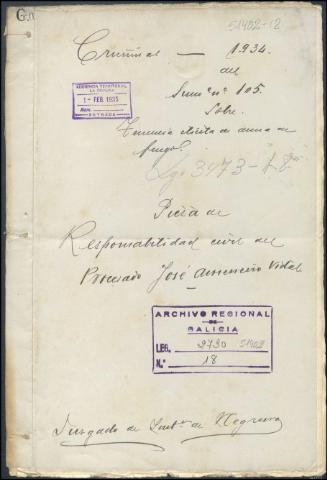 51402-12
Criminal — 1934
del
Sum.º nº 105
Sobre
Tenencia ilícita de arma de
fuego
AUDIENCIA TERRITORIAL
LA CORUÑA
1 - FEB. 1935
Núm.
ENTRADA
Lg. 3973-18
Pieza de
Responsabilidad civil del
Procesado José Vidal
ARCHIVO REGIONAL
DE
GALICIA
LEG. 2730 51402
N.º 18
Juzgado de Inst.ón de Negreira